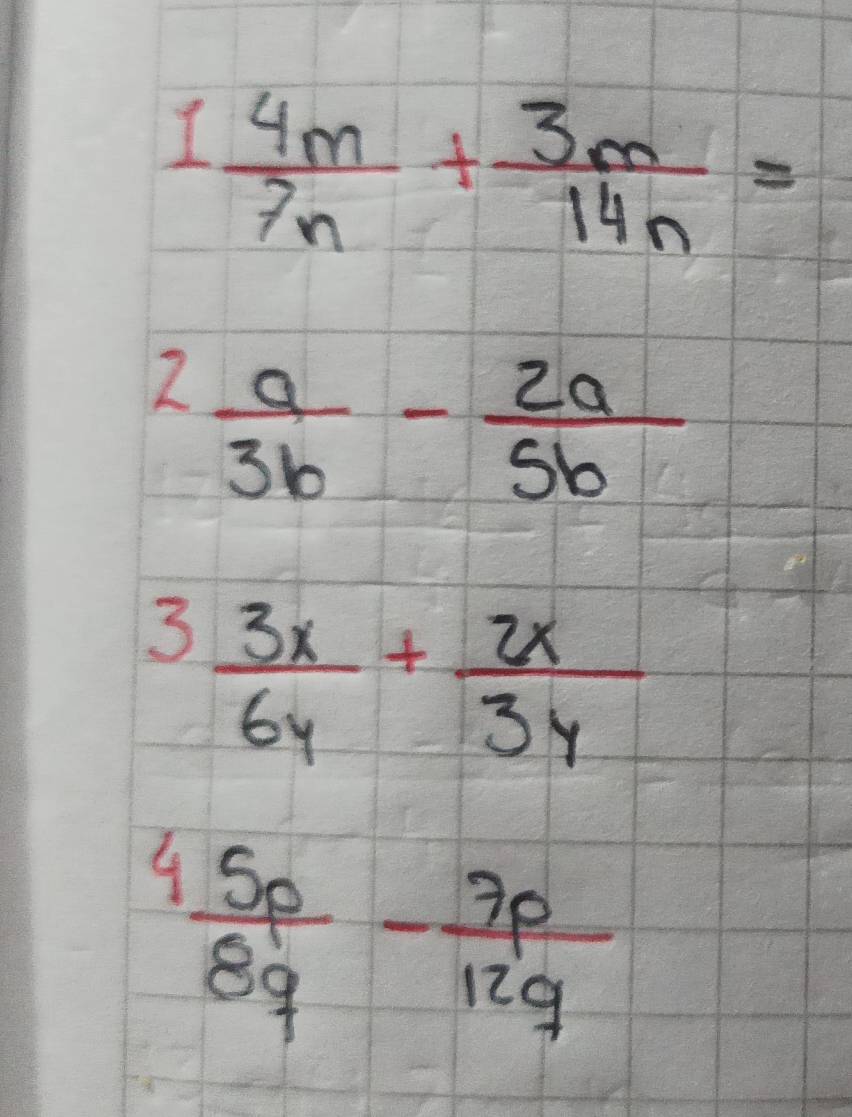 1 4m/7n + 3m/14n =
2 a/3b - 2a/5b
3 3x/6y + 2x/3y
4 5p/8q - 7p/12q